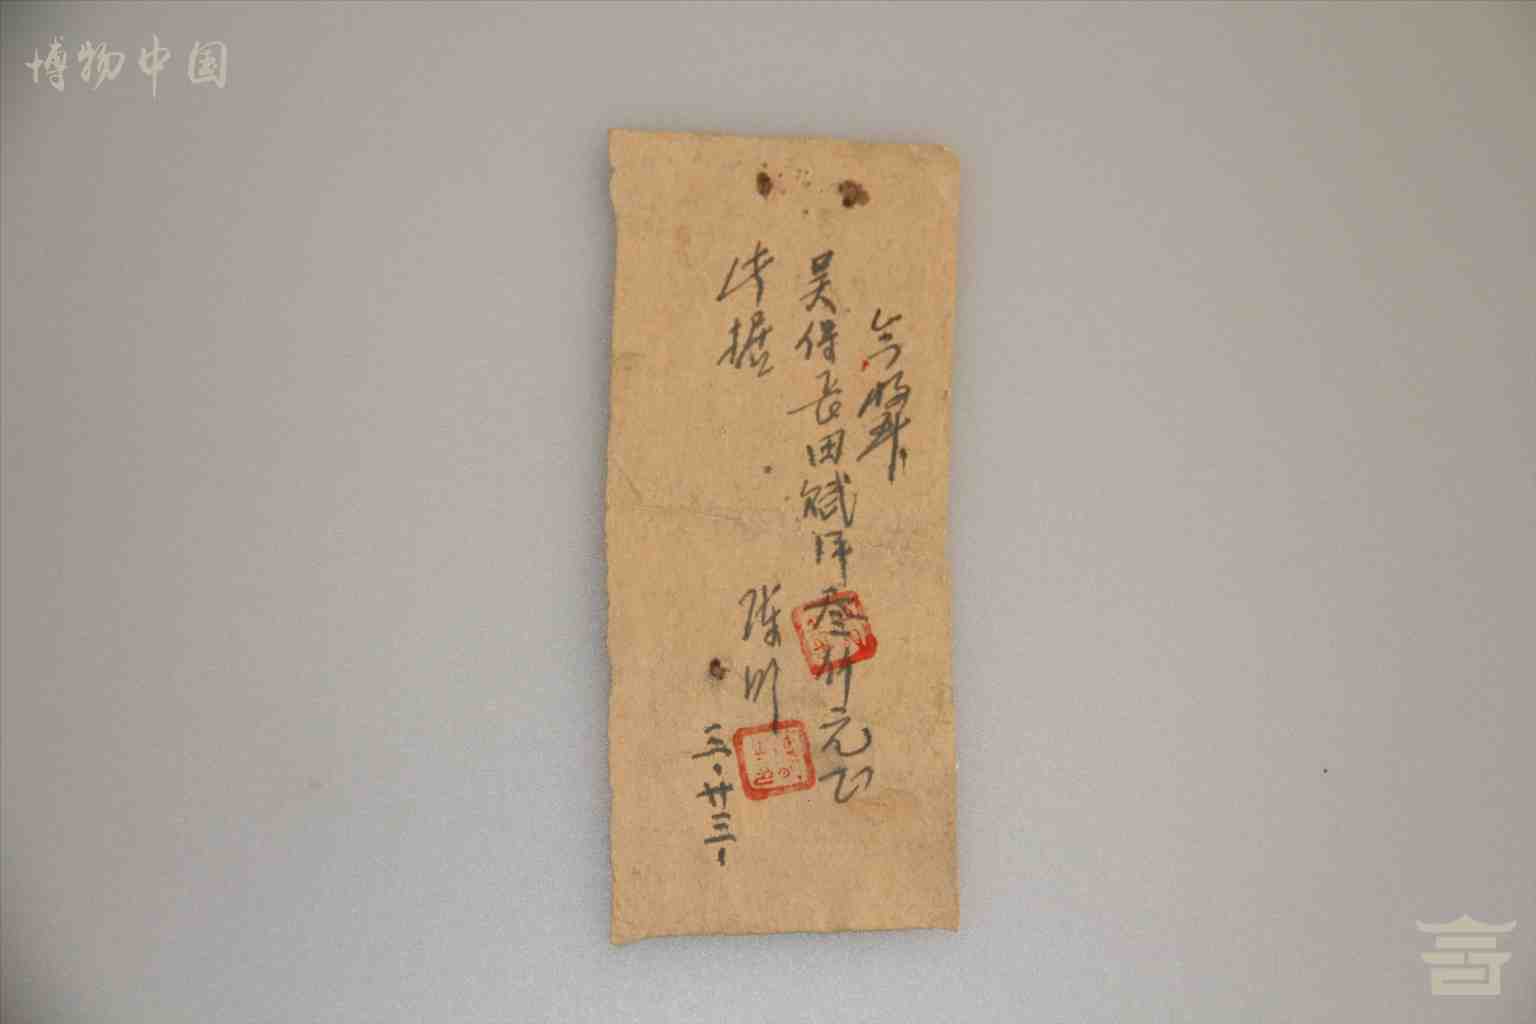 博物中国
今收到
吴保长田赋洋叁仟元正
此据
陈
三.廿三.